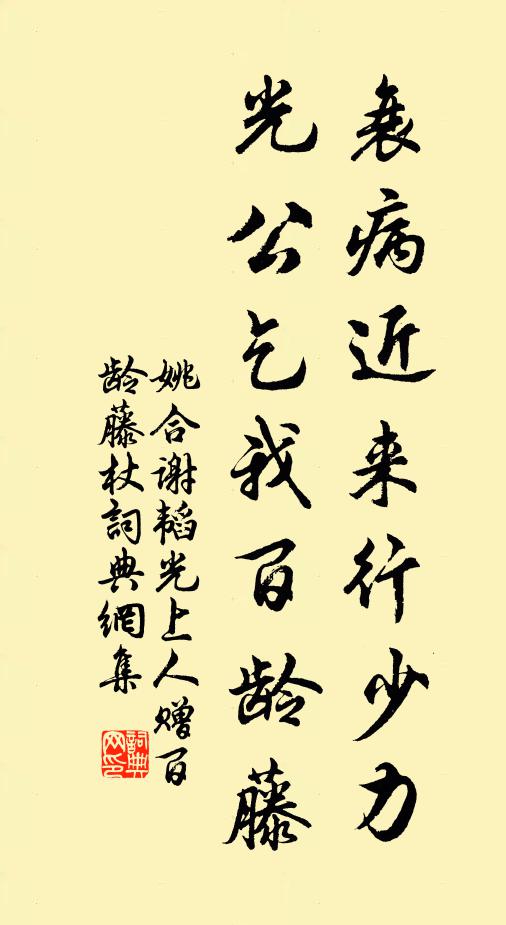 衰病近来行少力
光公乞我百龄藤
姚合谢韬光上人赠百
龄藤杖詞典網集
詞典网印